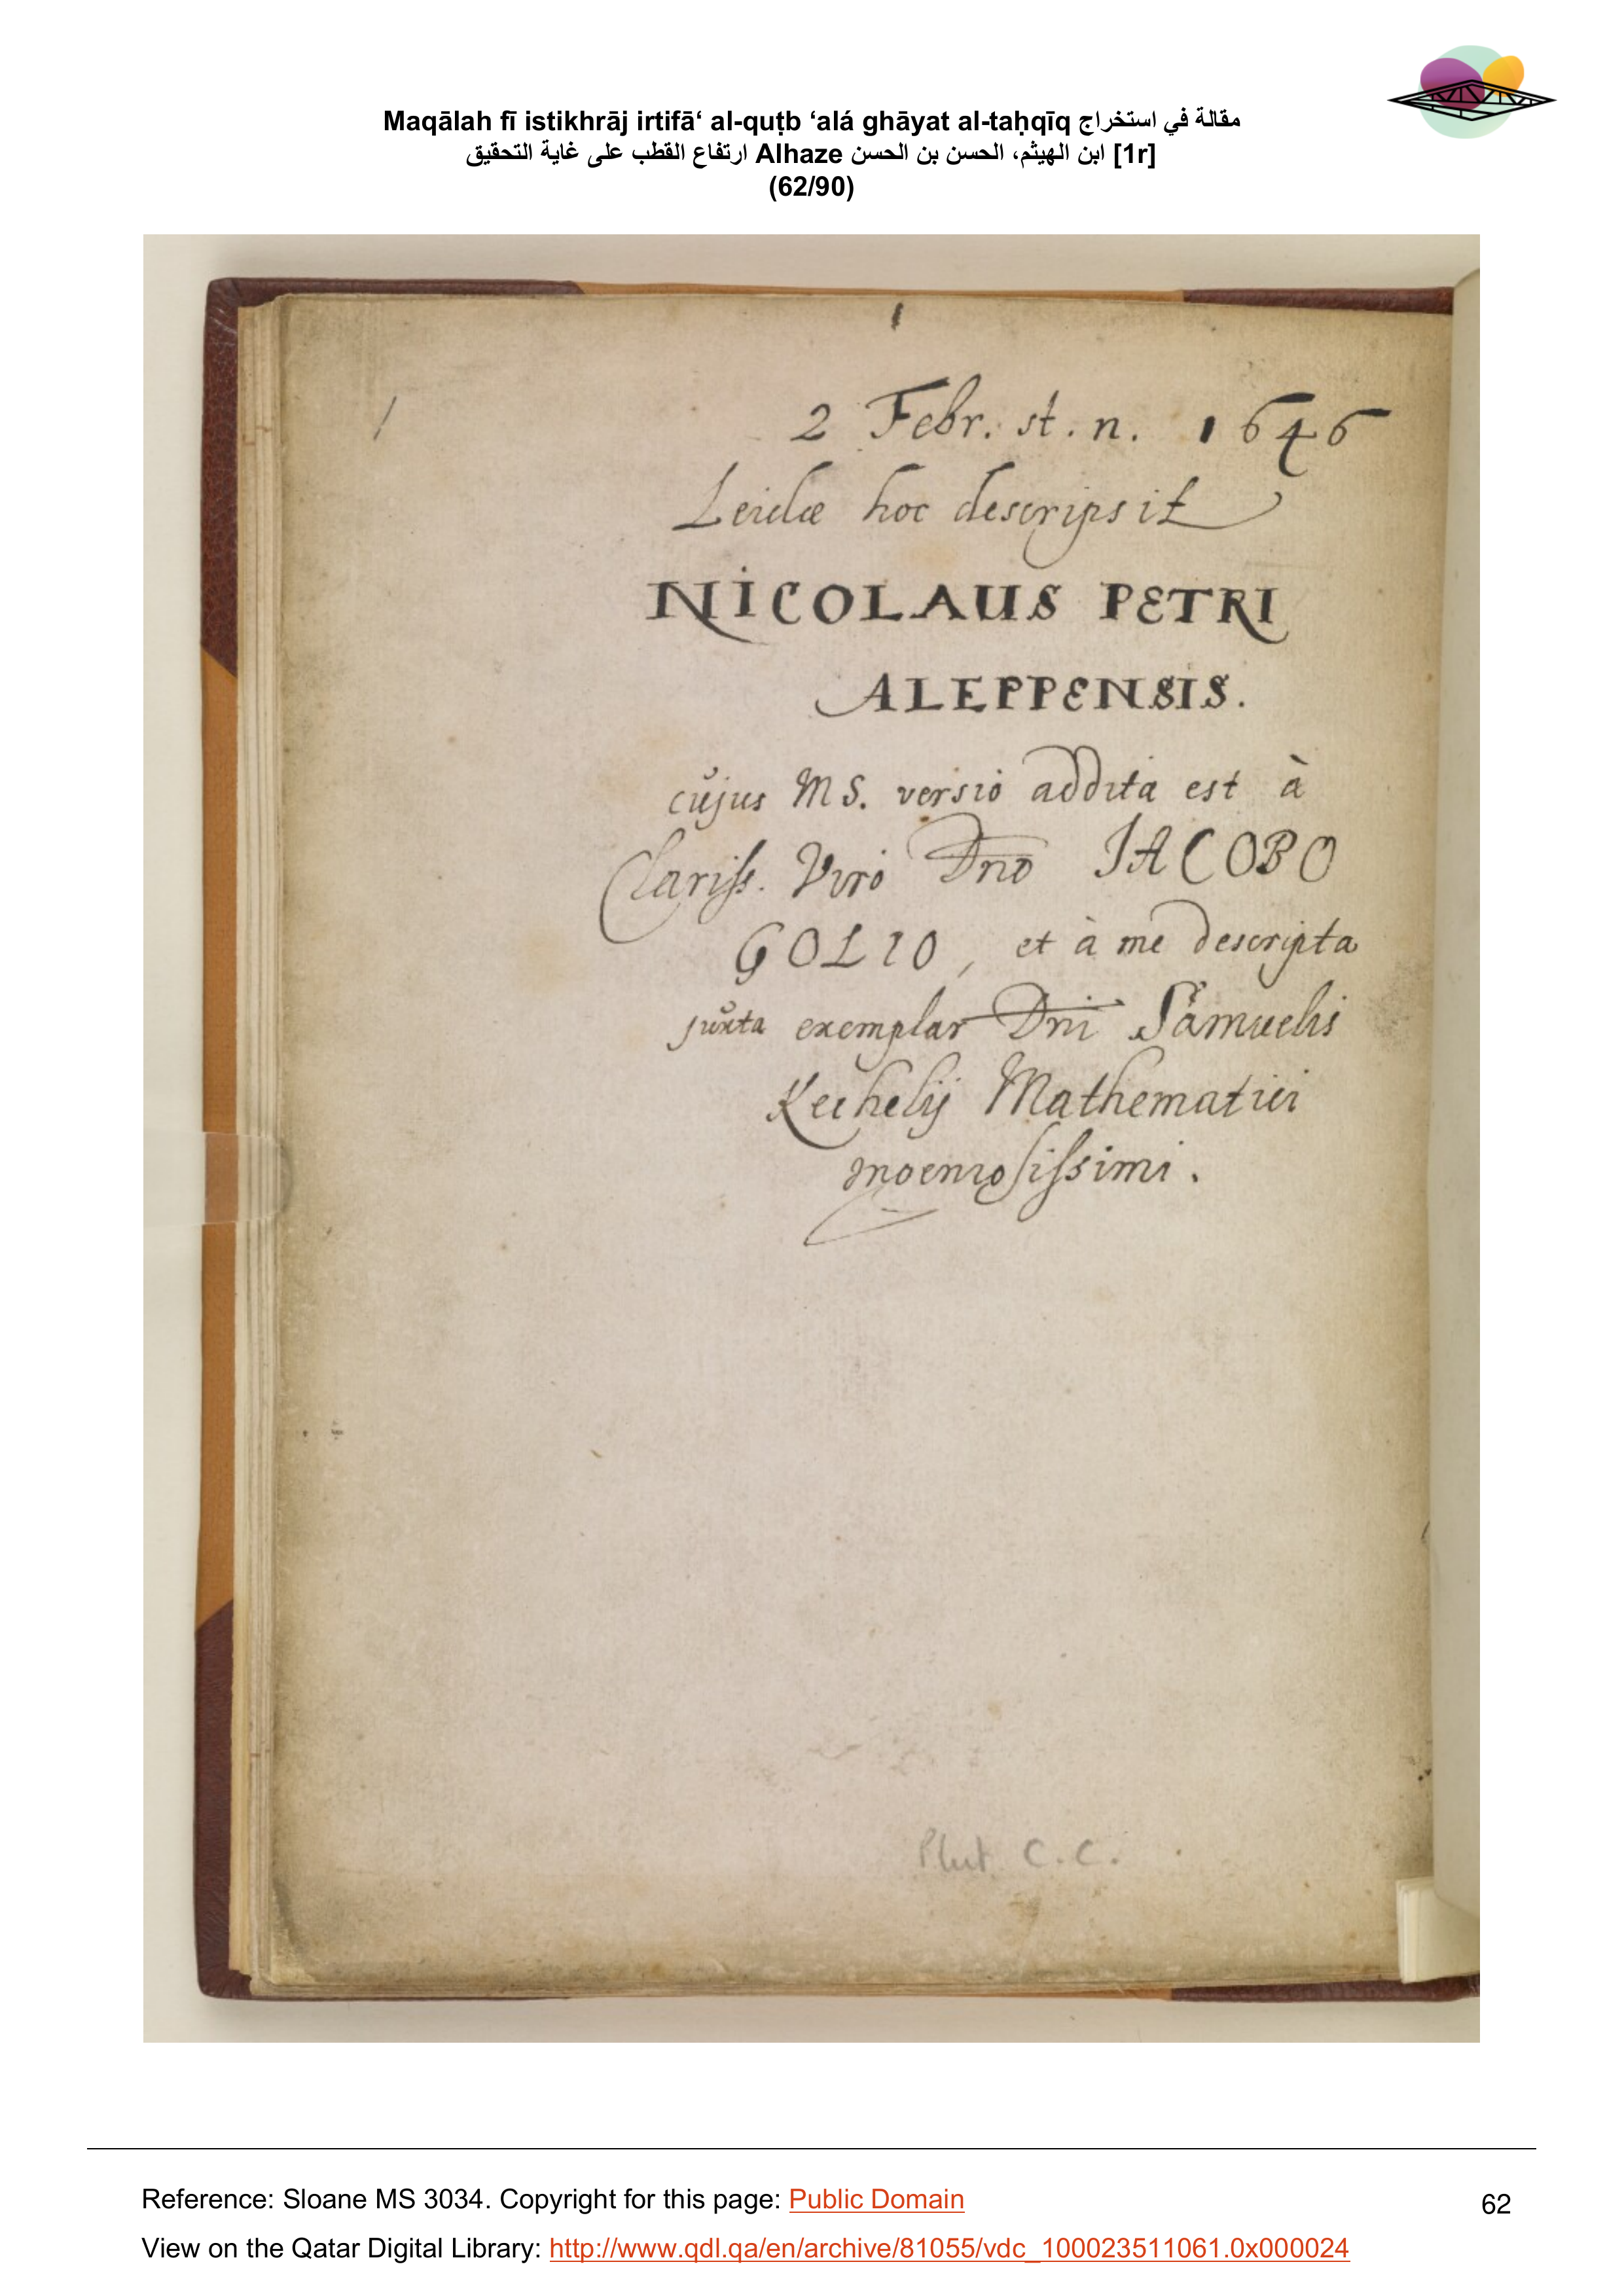 Maqālah fī istikhrāj irtifā‘ al-quṭb ‘alá ghāyat al-taḥqīq مقالة في استخراج
ارتفاع القطب على غاية التحقيق Alhaze ابن الهيثم، الحسن بن الحسن [1r]
(62/90)
1
1
2 Febr. st. n. 1646
Leidæ hoc descripsit
NICOLAUS PETRI
ALEPPENSIS.
cujus MS. versio addita est à
Clariss. Viro Dno JACOBO
GOLIO, et à me descripta
juxta exemplar Dni Samuelis
Kechelij Mathematici
Plut. C.C.
Reference: Sloane MS 3034. Copyright for this page: Public Domain
62
View on the Qatar Digital Library: http://www.qdl.qa/en/archive/81055/vdc_100023511061.0x000024